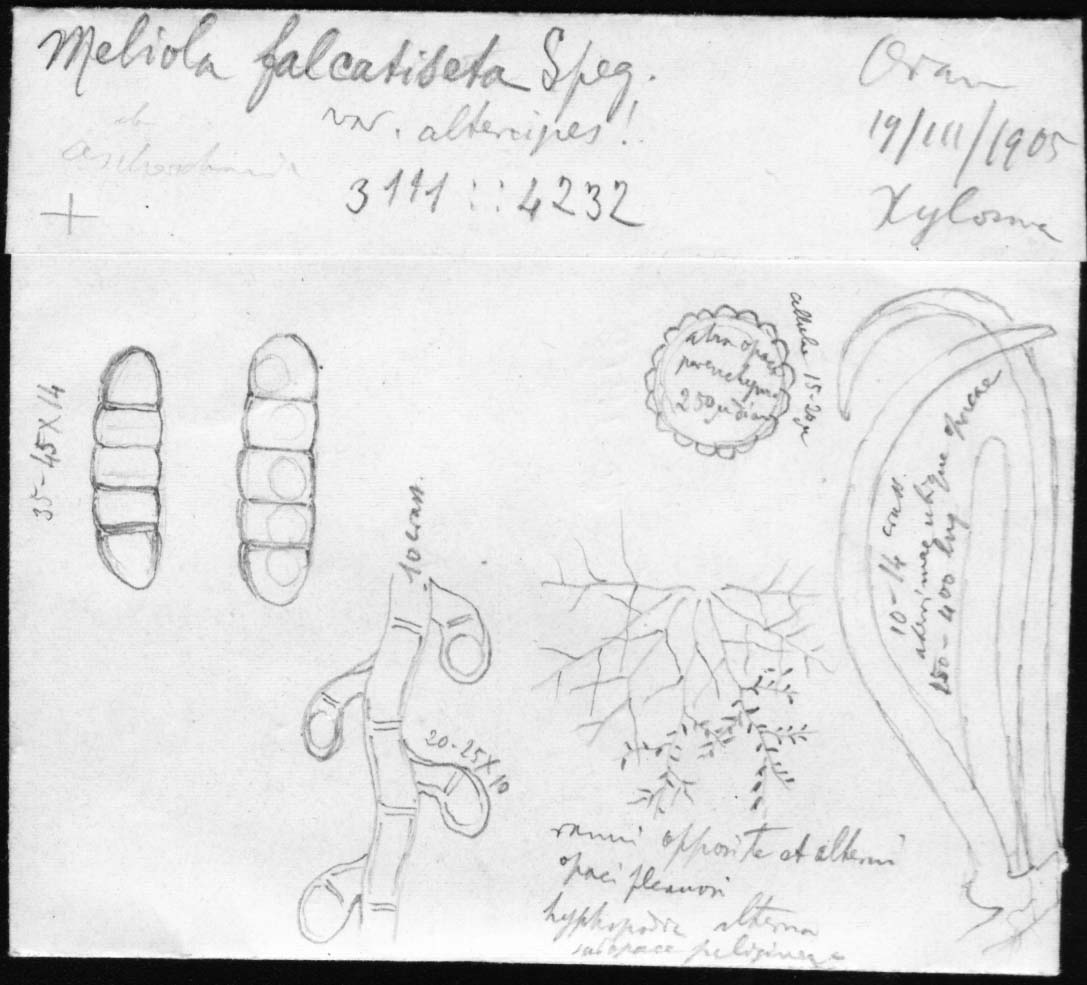 Meliola falcatiseta Speg.
var. altercipes!
3191 :: 4232
Oran
19/III/1905
Xylosma
+
35-45X14
atra opaca
parenchym.
250µ diam
15-20µ
10 crass.
20-25X10
10-14 crass.
150-400 lng que opacae
ramui opposite et alterni
opaci flexuosi
hyphopodia alterna
subopace fuliginea